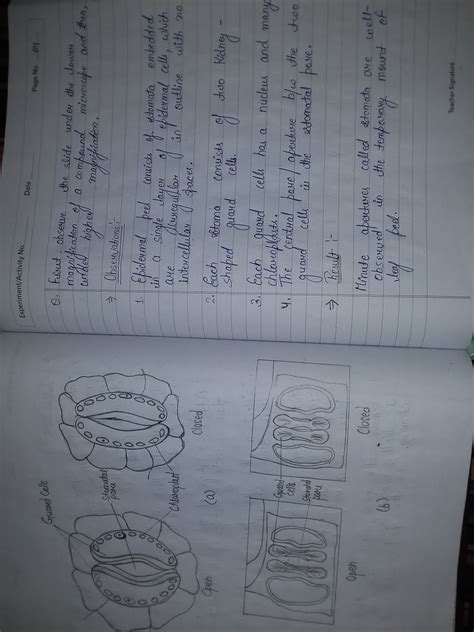 Guard Cells
Stomatal
pore
Chloroplast
Open
Closed
(a)
Guard
cells
Stomatal
pore
Open
Closed
(b)
Experiment/Activity No.
Date
Page No.
6. First observe the slide under the lower
magnification of a compound microscope and then,
under higher magnification.
⇒ Observations:-
1. Epidermal peel consists of stomata embedded
in a single layer of epidermal cells, which
are irregular in outline with no
intercellular spaces.
2. Each stoma consists of two kidney-
shaped guard cells.
3. Each guard cells has a nucleus and many
chloroplasts.
4. The central pore/aperture b/w the two
guard cells is the stomatal pore.
⇒ Result :-
Minute apertures called stomata are well-
observed in the temporary mount of
leaf peel.
Teacher Signature